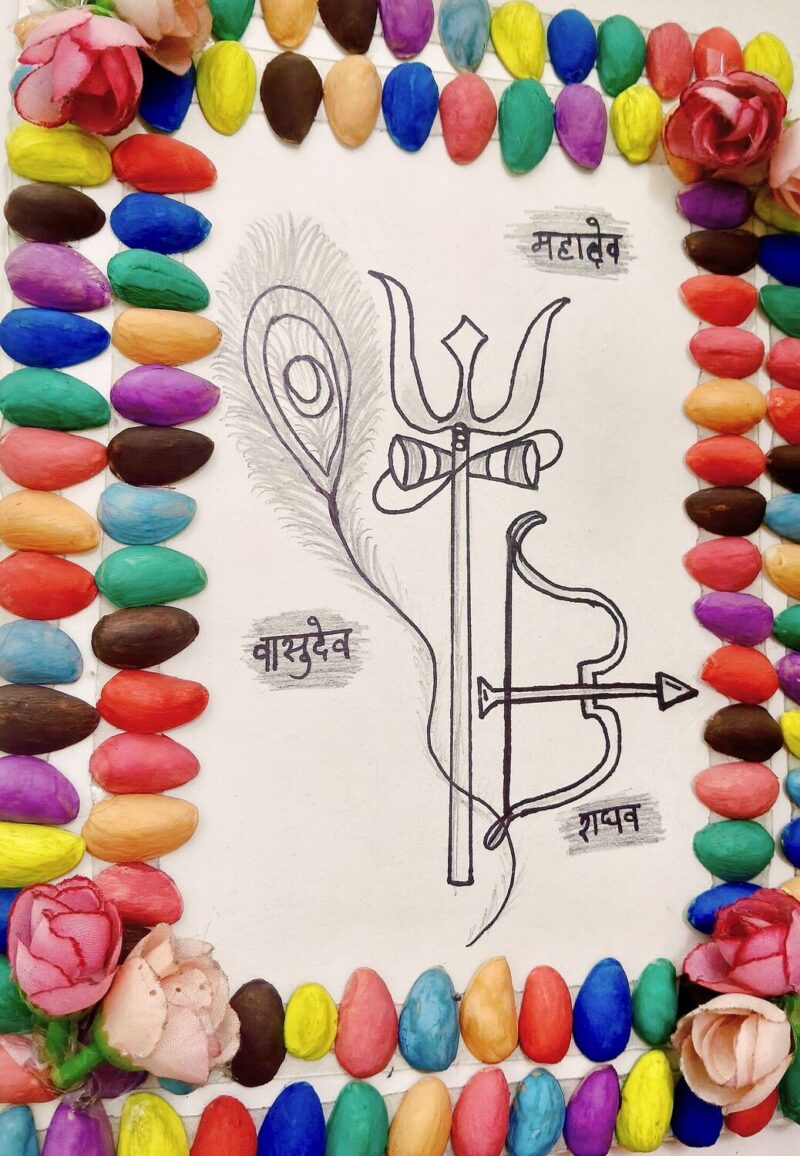 महादेव
वासुदेव
राघव